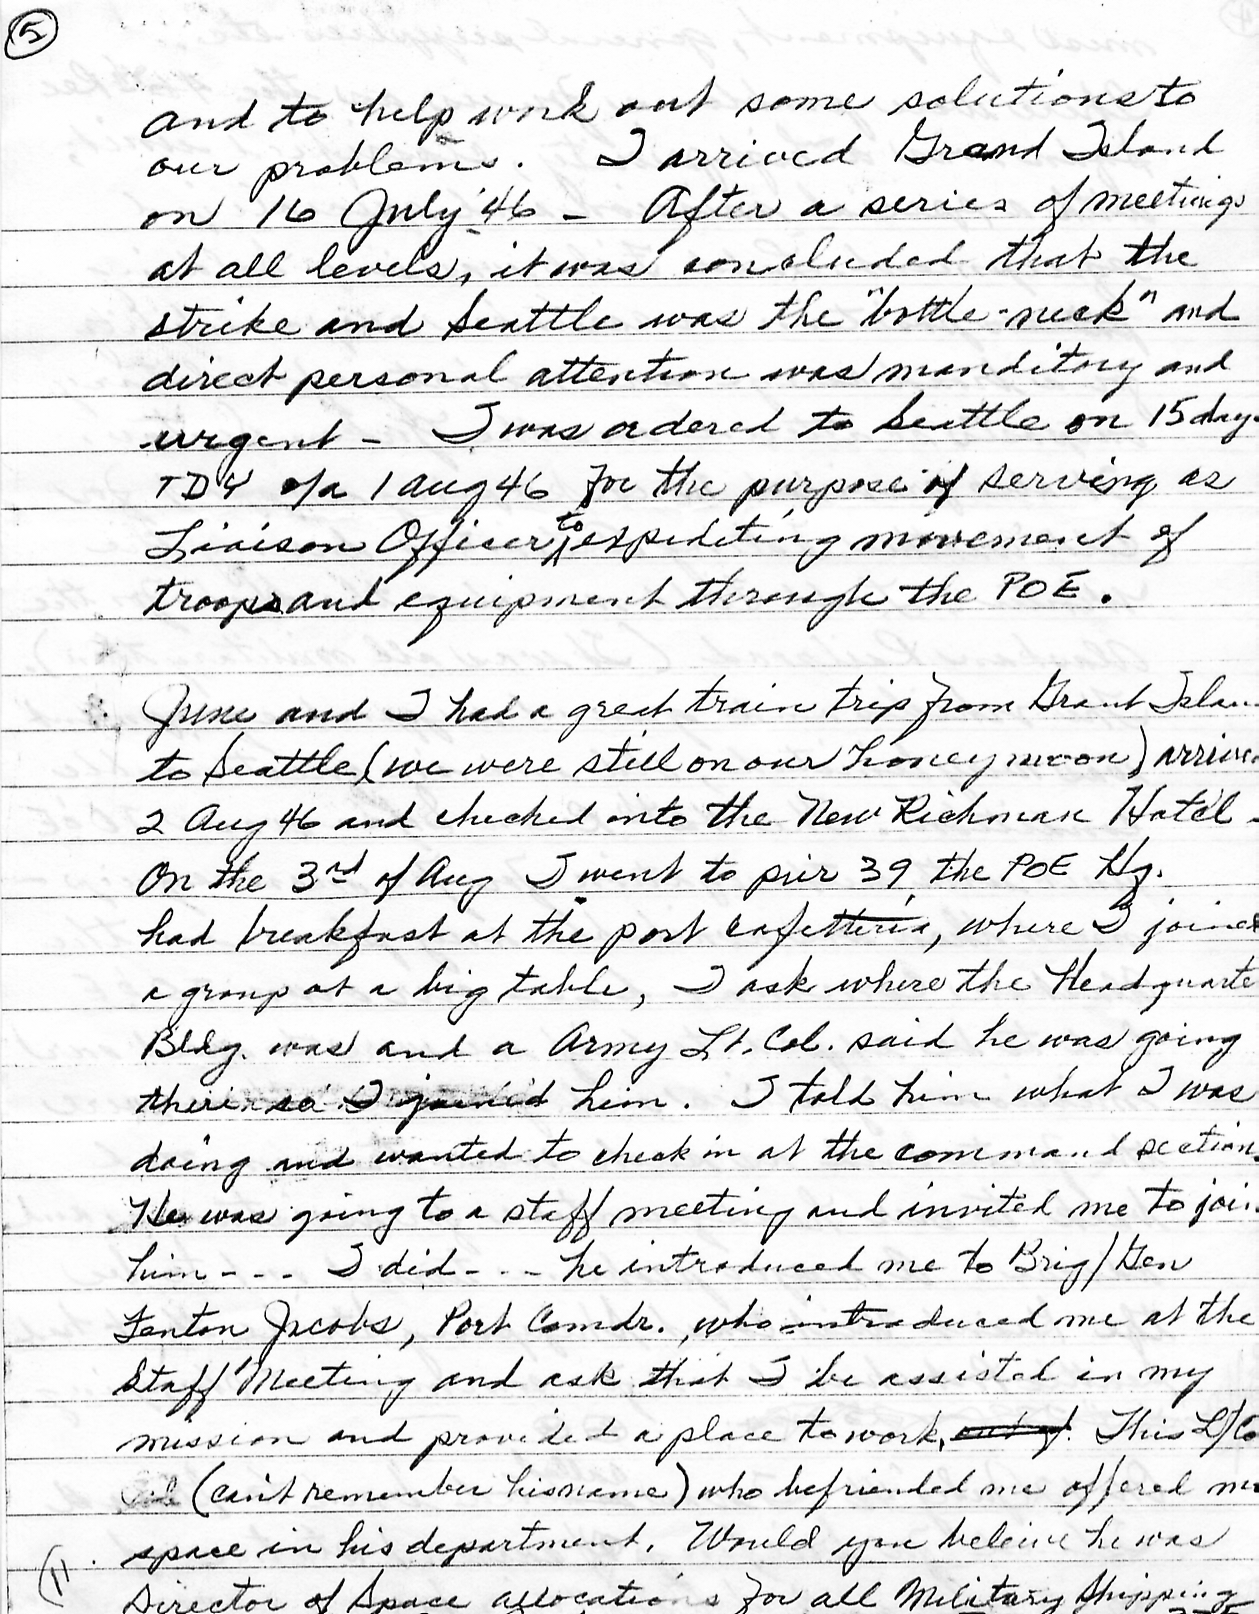 5
and to help work out some solutions to
our problems. I arrived Grand Island
on 16 July '46 - After a series of meetings
at all levels, it was concluded that the
strike and Seattle was the "bottle-neck" and
direct personal attention was manditory and
urgent - I was ordered to Seattle on 15 day
TDY o/a 1 Aug 46 for the purpose of serving as
Liaison Officer, to expediting movement of
troops and equipment through the POE.
June and I had a great train trip from Grant Islan
to Seattle (we were still on our honeymoon) arrive
2 Aug 46 and checked into the New Richman Hotel -
On the 3rd of Aug I went to pier 39, the POE Hq.
had breakfast at the port cafetteria, where I joined
a group at a big table, I ask where the Headquarte
Bldg. was and a Army Lt. Col. said he was going
their so I joined him. I told him what I was
doing and wanted to check in at the command section.
He was going to a staff meeting and invited me to joi
him - - - I did - - - he introduced me to Brig/Gen
Fenton Jacobs, Port Comdr., who introduced me at the
Staff Meeting and ask that I be assisted in my
mission and provided a place to work, This Lt/Co
(can't remember his name) who befriended me offered me
space in his department. Would you beleive he was
Director of Space allocations for all Military Shipping